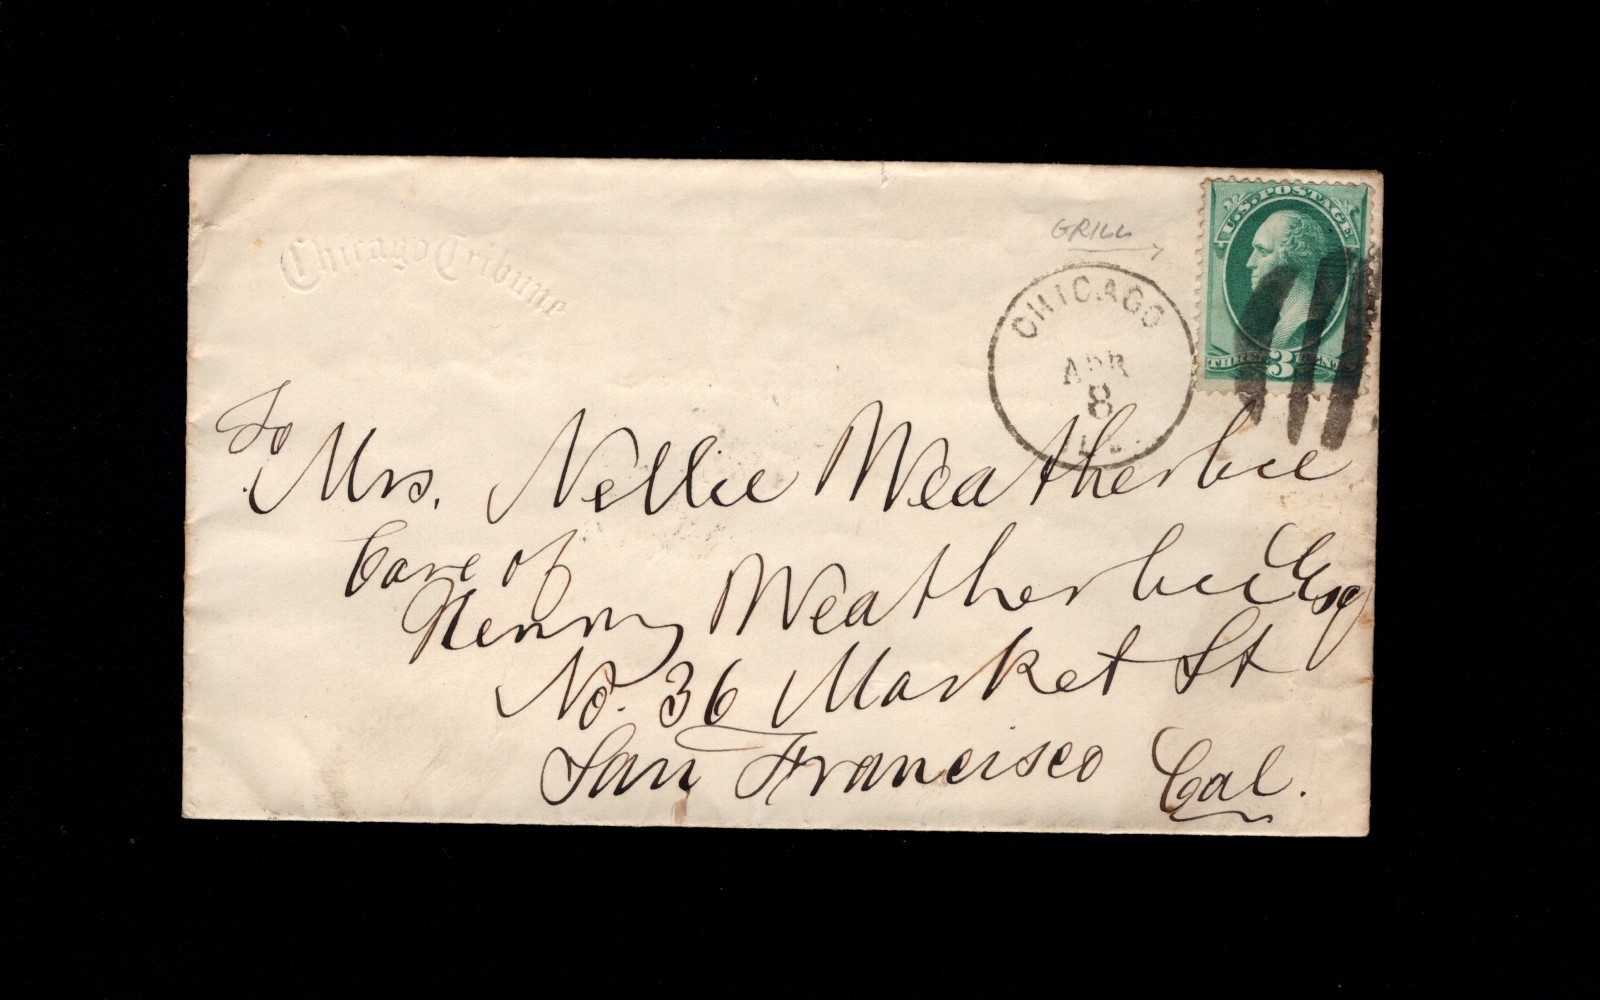 Chicago Tribune
GRILL
U.S. POSTAGE
THREE 3 CENTS
CHICAGO
APR
8
ILL.
To
Mrs. Nellie Weatherbee
Care of
Henry Weatherbee Esq
No. 36 Market St
San Francisco Cal.